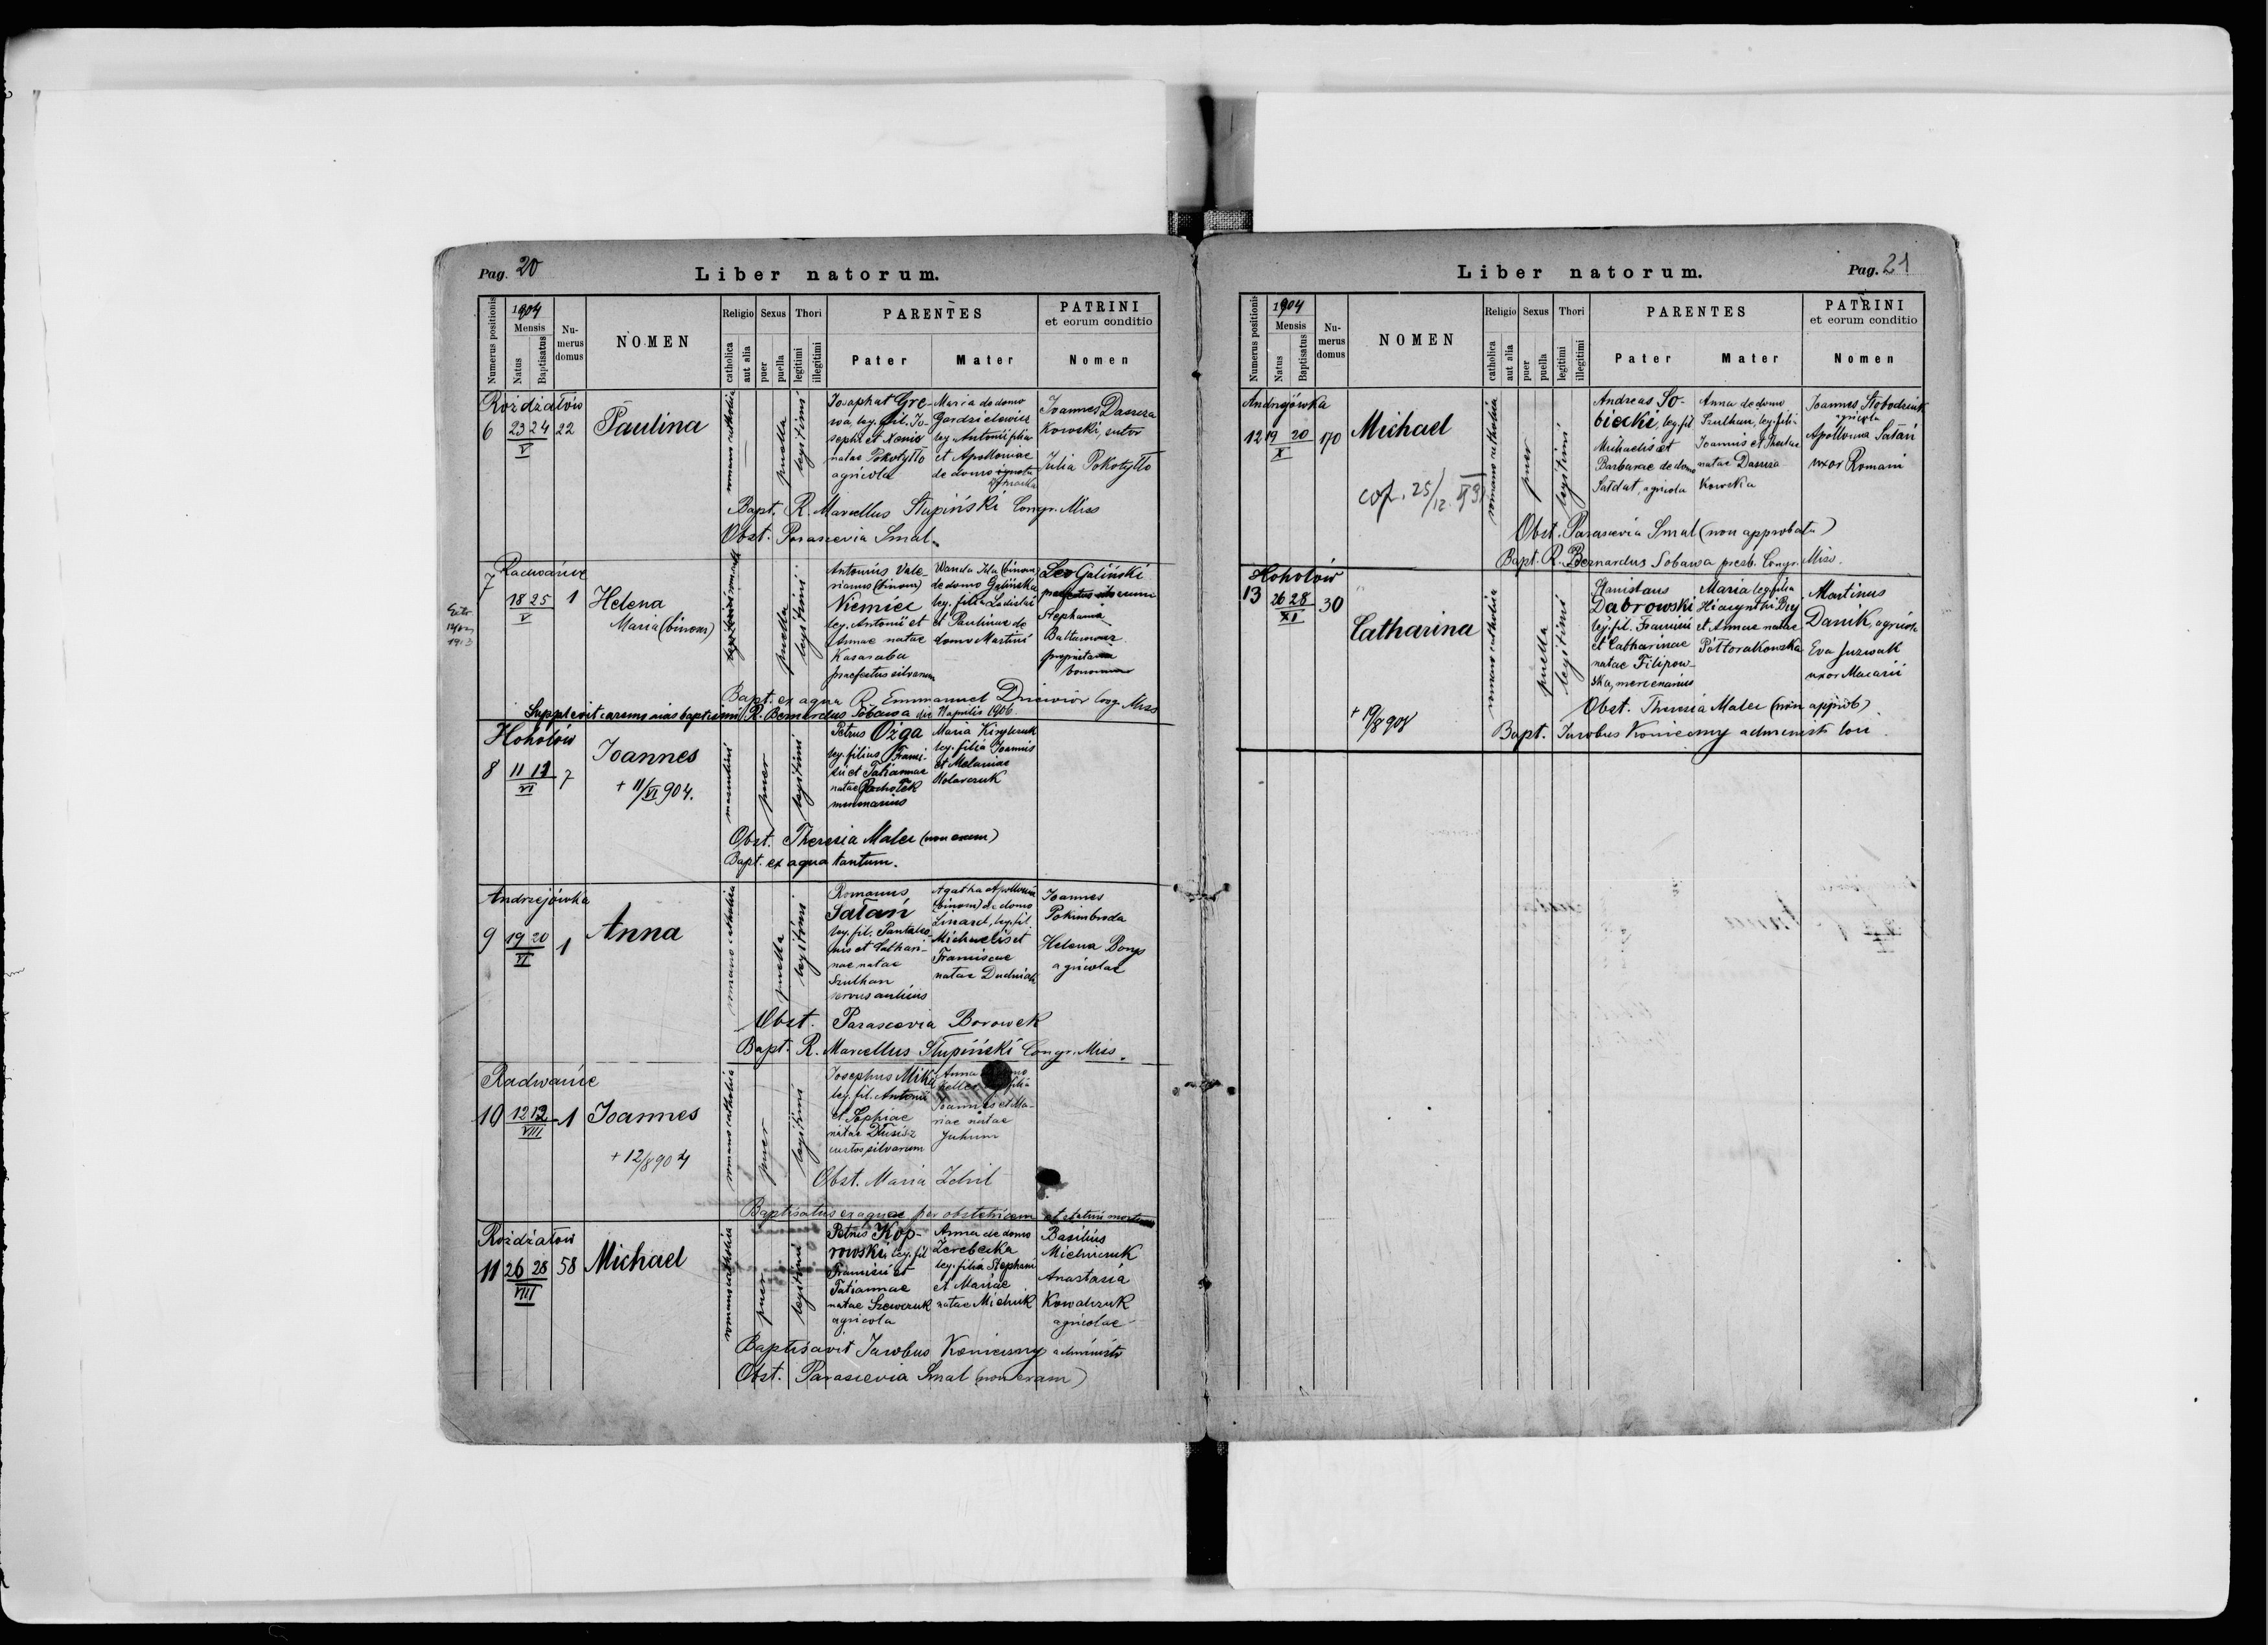 Pag. 20
Liber natorum.
Numerus positionis
1904
Mensis
Natus
Baptisatus
Numerus domus
NOMEN
Religio
catholica
aut alia
Sexus
puer
puella
Thori
legitimi
illegitimi
PARENTES
Pater
Mater
PATRINI
et eorum conditio
Nomen
Rożdżałów
6 23 24 22
V
Paulina
romano catholica
puella
legitimi
Josaphat Gre-
wa, leg. fil. Jo-
sephi et Xeniae
natae Pokotyłło
agricola
Maria de domo
Gordzielewicz
leg. Antonii filia
et Apolloniae
de domo ignota
Joannes Dassza
Kowski, sutor
Julia Pokotyłło
Bapt. R. Marcellus Słupiński Congr. Miss
Obst. Parascevia Smal.
Radwańce
7 18 25 1
V
Helena
Maria (binom)
puella
legitimi
Antonius Vale-
rianus (binom)
Niemiec
leg. Antonii et
Annae natae
Kasaraba
praefectus silvarum
Wanda Ida (binom)
de domo Galińska
leg. filia Ladislai
et Paulinae de
domo Martini
Leo Galiński
Stephania
proprietaria
bonorum
Bapt. ex aqua R. Emmanuel Dziewior Cong. Miss
Supplevit caeremonias baptismi R. Bernardus Sobawa die 11 aprilis 1906
Hohołów
8 11 12 7
VI
Joannes
+ 11/VI 904.
puer
legitimi
Petrus Ożga
leg. filius Franci-
sci et Tatiannae
natae Pachołek
Maria Kirylczuk
leg. filia Joannis
et Melaniae
Obst. Theresia Malec (non exam)
Bapt. ex aqua tantum.
Andrzejówka
9 19 20 1
VI
Anna
romano catholica
puella
legitimi
Romanus
Satań
leg. fil. Pantaleo-
nis et Cathari-
nae natae
Szulhan
servus aulicus
Agatha Apollonia
(binom) de domo
Linard, leg. fil.
Michaelis et
Franciscae
natae Dudniak
Joannes
Pokimbroda
Helena Bonys
agricolae
Obst. Parascevia Borowek
Bapt. R. Marcellus Słupiński Congr. Miss.
Radwańce
10 12 12 1
VIII
Joannes
+ 12/8 904
romano catholica
puer
legitimi
Josephus Mika
leg. fil. Antonii
et Sophiae
natae
custos silvarum
Anna
filia
Joannis et Ma-
riae natae
Juhum
Obst. Maria Zdril
Baptisatus ex aqua per obstetricem et statim mortuus
Rożdżałów
11 26 28 58
VIII
Michael
romano catholica
puer
legitimi
Petrus Kop-
rowski, leg. fil
Francisci et
Tatiannae
natae Szewczuk
agricola
Anna de domo
Zerebecka
leg. filia Stephani
et Mariae
natae Michuk
Basilius
Mielniczuk
Anastasia
Kowalczuk
agricolae
Baptisavit Jacobus Konieczny administr
Obst. Parascevia Smal (non exam)
Liber natorum.
Pag. 21
Numerus positionis
1904
Mensis
Natus
Baptisatus
Numerus domus
NOMEN
Religio
catholica
aut alia
Sexus
puer
puella
Thori
legitimi
illegitimi
PARENTES
Pater
Mater
PATRINI
et eorum conditio
Nomen
Andrzejówka
12 19 20 170
X
Michael
romano catholica
puer
legitimi
Andreas So-
biecki, leg. fil
Michaelis et
Barbarae de domo
Sałdat, agricola
Anna de domo
Szulhan, leg. fili-
Joannis et Theclae
natae Dassza
Kowska
Joannes Słobodziuk
agricola
Apollonia Satań
uxor Romani
Obst. Parascevia Smal (non approbata)
Bapt. R. Bernardus Sobawa presb. Congr. Miss.
Hohołów
13 26 28 30
XI
Catharina
+ 19/8 908
romano catholica
puella
legitimi
Stanislaus
Dąbrowski
leg. fil. Francisci
et Catharinae
natae Filipow-
ska, mercenarius
Maria leg. filia
Hiacynthi Bryj
et Annae natae
Półtorakowska
Martinus
Danik, agricola
Eva Juzwak
uxor Macarii
Obst. Theresia Malec (non approb)
Bapt. Jacobus Konieczny administ loci